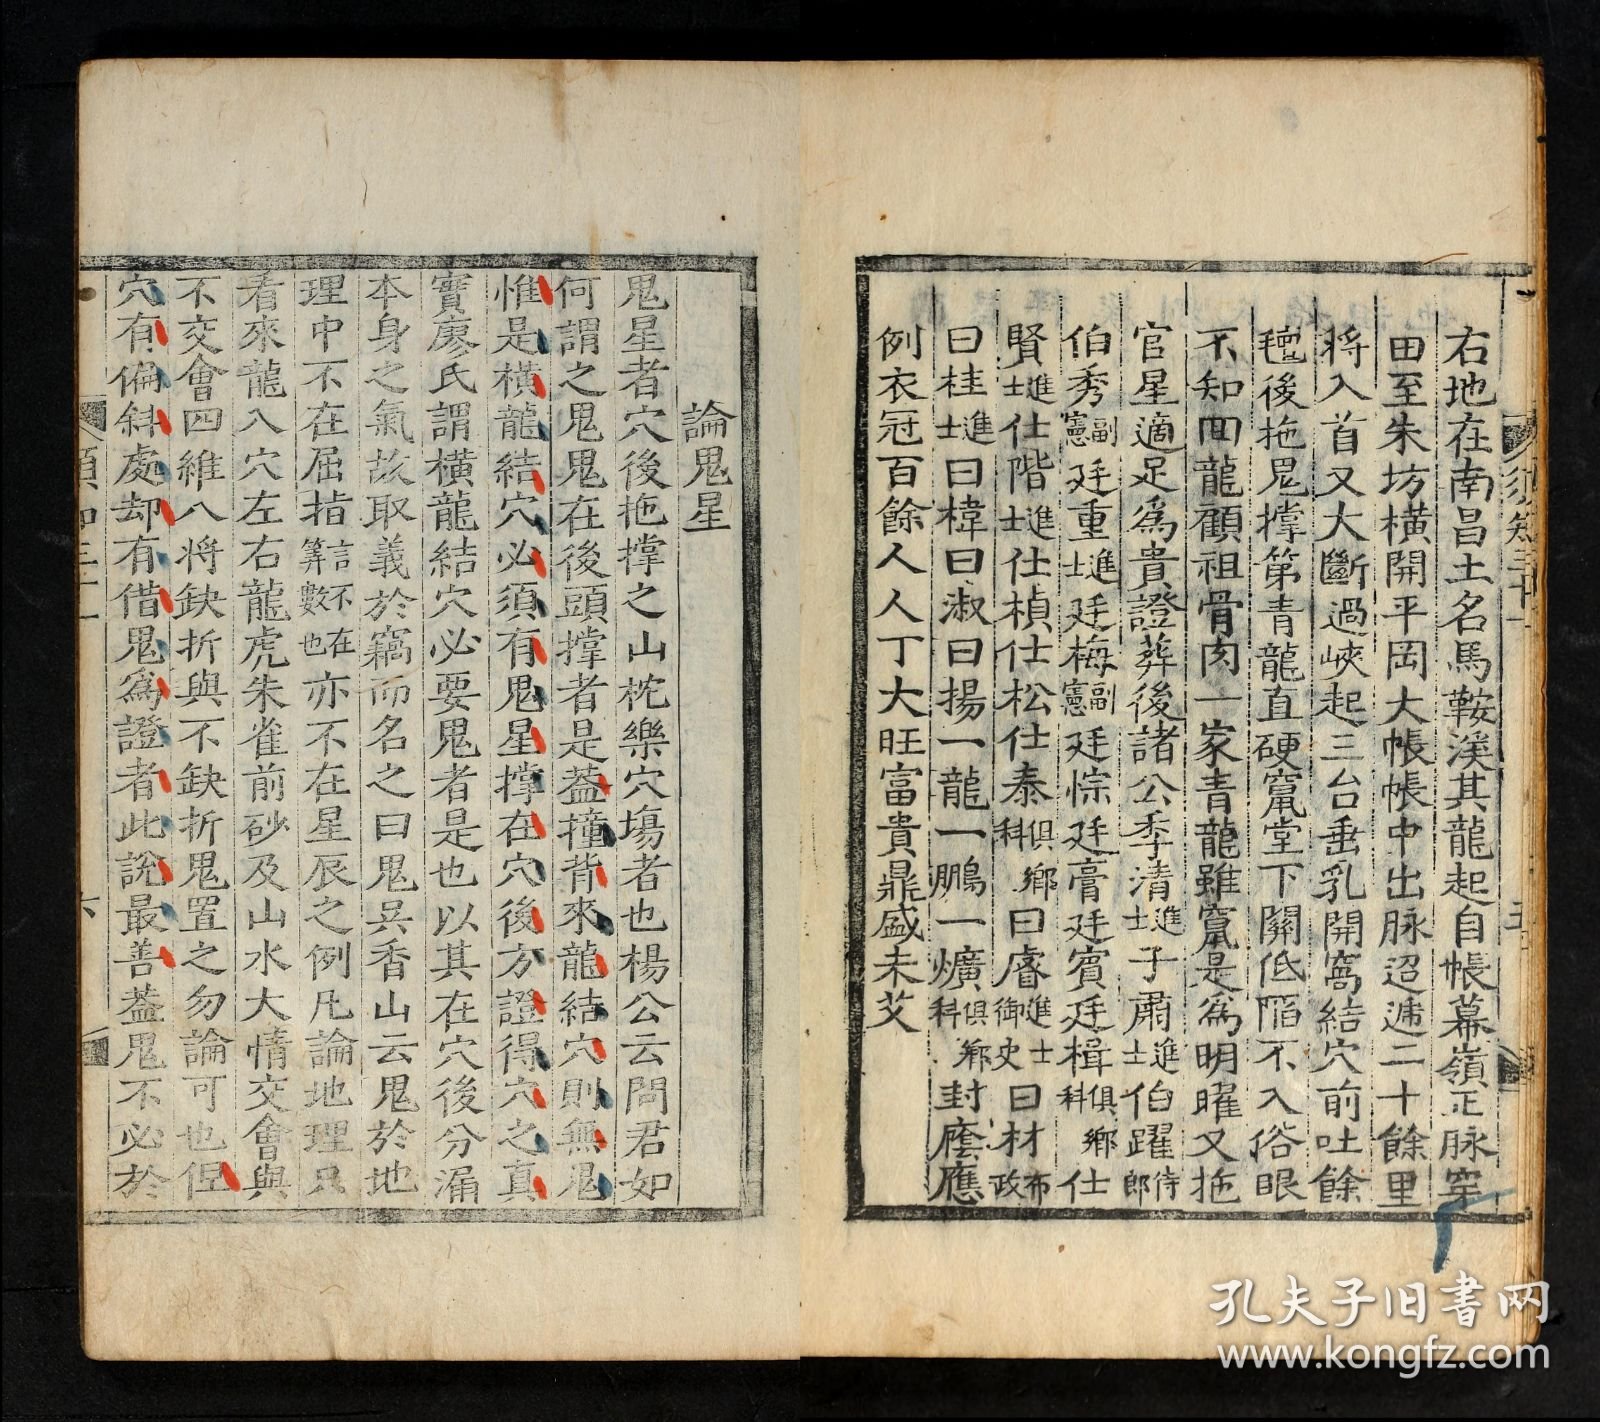 右地在南昌土名馬鞍溪其龍起自帳幕嶺正脉穿
田至朱坊橫開平岡大帳帳中出脉迢逓二十餘里
將入首又大斷過峽起三台垂乳開窩結穴前吐餘
氊後拖鬼撑第青龍直硬竄堂下關低陷不入俗眼
不知回龍顧祖骨肉一家青龍雖竄是爲明曜又拖
官星適足爲貴證葬後諸公季清進士子肅進士伯躍侍郎
伯秀副憲廷重進士廷梅副憲廷悰廷膏廷賓廷楫俱鄉科仕
賢進士仕階進士仕楨仕松仕泰俱鄉科曰睿進士御史曰材布政
曰桂進士曰橦曰淑曰揚一龍一鵬一爌俱鄉科封廕應
例衣冠百餘人人丁大旺富貴鼎盛未艾
論鬼星
鬼星者穴後拖撑之山枕樂穴塲者也楊公云問君如
何謂之鬼鬼在後頭撑者是葢撞背來龍結穴則無鬼
惟是橫龍結穴必須有鬼星撑在穴後方證得穴之真
實廖氏謂橫龍結穴必要鬼者是也以其在穴後分漏
本身之氣故取義於竊而名之曰鬼吳香山云鬼於地
理中不在屈指言不在筭數也亦不在星辰之例凡論地理只
看來龍入穴左右龍虎朱雀前砂及山水大情交會與
不交會四維八將缺折與不缺折鬼置之勿論可也但
穴有偏斜處却有借鬼爲證者此說最善葢鬼不必於
須知三十一
五
六
孔夫子旧书网
www.kongfz.com